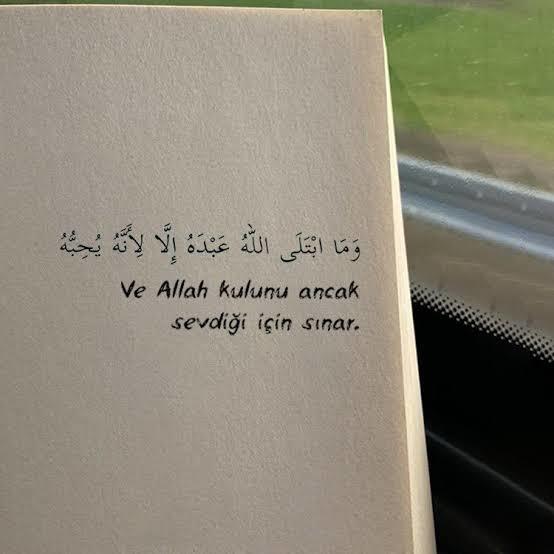 وَمَا ابْتَلَى اللهُ عَبْدَهُ إِلَّا لِأَنَّهُ يُحِبُّهُ
Ve Allah kulunu ancak
sevdiği için sınar.